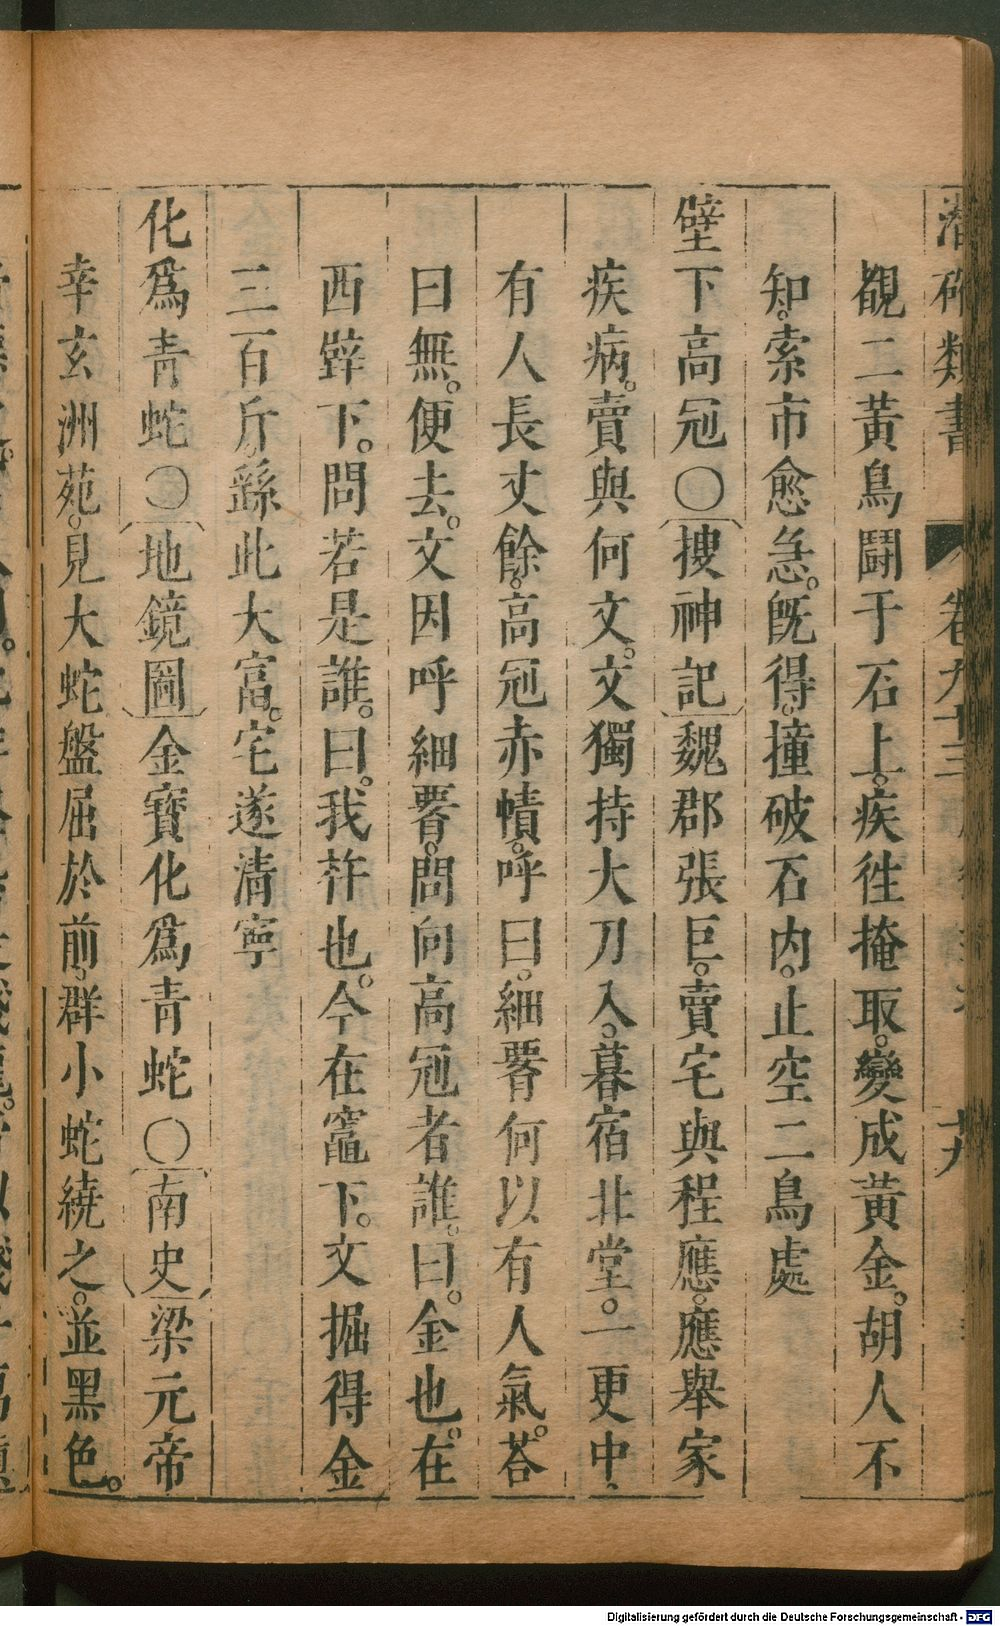 潛確類書 卷九十三 十九
覩二黃鳥鬪于石上。疾徃掩取。變成黃金。胡人不
知。索市愈急。旣得。撞破石內。止空二鳥處
壁下高冠○搜神記魏郡張巨。賣宅與程應。應舉家
疾病。賣與何文。文獨持大刀入。暮宿北堂。一更中。
有人長丈餘。高冠赤幘。呼曰。細𦝫何以有人氣。荅
曰無。便去。文因呼細𦝫。問向高冠者誰。曰。金也。在
西壁下。問若是誰。曰。我杵也。今在竈下。文掘得金
三百斤。繇此大富。宅遂清寧
化爲青蛇○地鏡圖金寶化爲青蛇○南史梁元帝
幸玄洲苑。見大蛇盤屈於前。群小蛇繞之。並黑色。
Digitalisierung gefördert durch die Deutsche Forschungsgemeinschaft - DFG